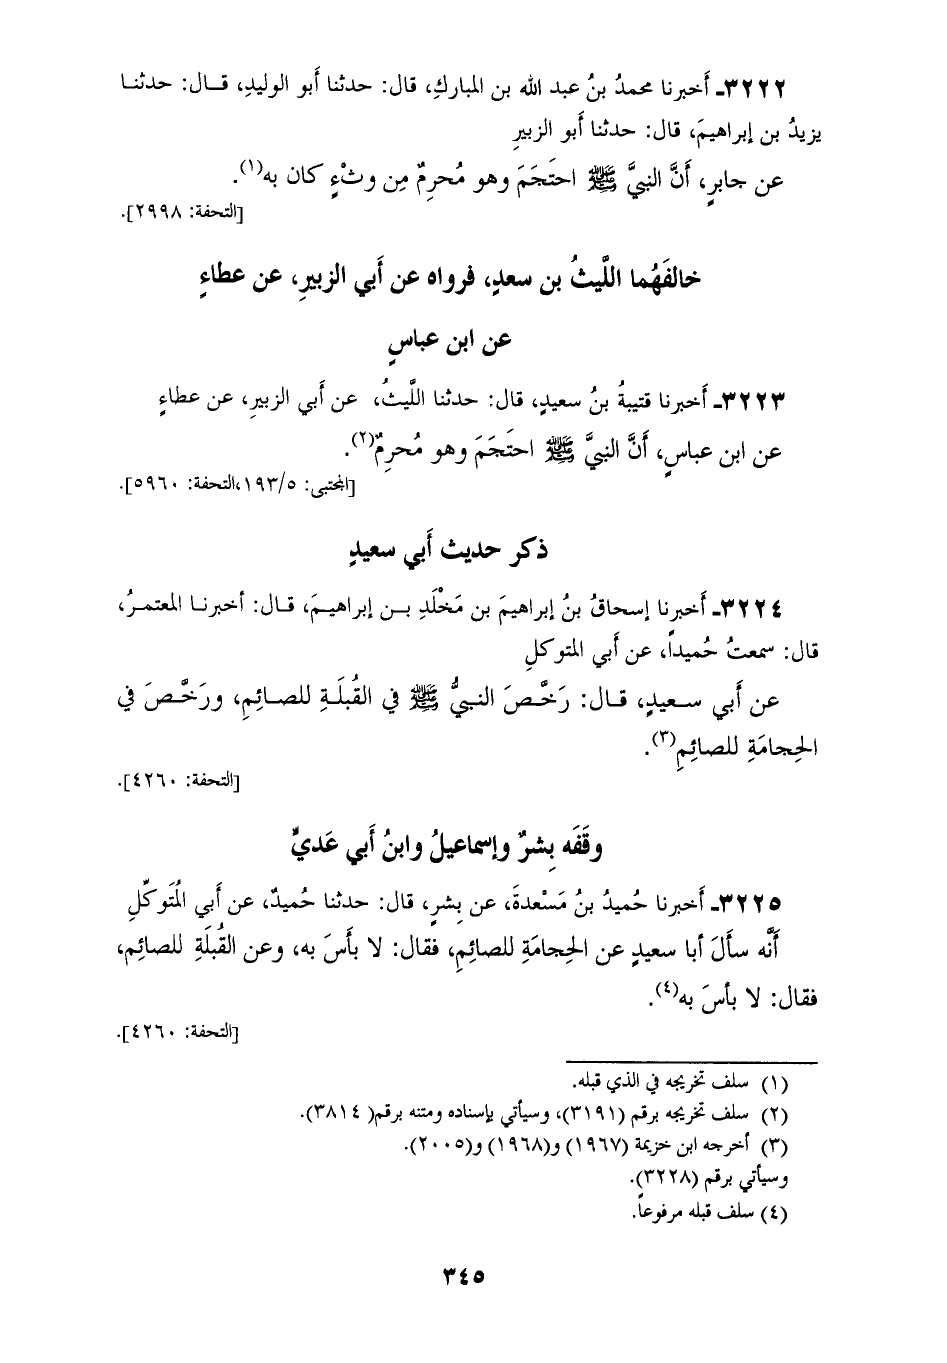 ٣٢٢٢ـ أَخبرنا محمدُ بنُ عبد الله بن المباركِ، قال: حدثنا أَبو الوليدِ، قـال: حدثنـا
يزيدُ بن إبراهيمَ، قال: حدثنا أَبو الزبيرِ
عن جابرٍ، أَنَّ النبيَّ ﷺ احتَجَمَ وهو مُحرِمٌ مِن وثْءٍ كان به(١).
[التحفة: ٢٩٩٨].
خالفَهُما اللَّيثُ بن سعدٍ، فرواه عن أَبي الزبيرِ، عن عطاءٍ
عن ابن عباسٍ
٣٢٢٣ـ أَخبرنا قتيبةُ بنُ سعيدٍ، قال: حدثنا اللَّيثُ، عن أَبي الزبيرِ، عن عطاءٍ
عن ابن عباسٍ، أَنَّ النبيَّ ﷺ احتَجَمَ وهو مُحرِمٌ(٢).
[المجتبى: ١٩٣/٥،التحفة: ٥٩٦٠].
ذكر حديث أَبي سعيدٍ
٣٢٢٤ـ أَخبرنا إسحاقُ بنُ إبراهيمَ بن مَخْلَدِ بـن إبراهيـمَ، قـال: أخبرنـا المعتمرُ،
قال: سمعتُ حُميداً، عن أَبي المتوكلِ
عن أَبي سـعيدٍ، قـال: رَخَّـصَ النـبيُّ ﷺ في القُبلَـةِ للصـائِمِ، ورَخَّـصَ في
الحِجامَةِ للصائِمِ(٣).
[التحفة: ٤٢٦٠].
وقَفَه بِشرٌ وإسماعيلُ وابنُ أَبي عَديٍّ
٣٢٢٥ـ أَخبرنا حُميدُ بنُ مَسْعدةَ، عن بِشرٍ، قال: حدثنا حُميدٌ، عن أَبي المُتَوكِّلِ
أَنَّه سأَلَ أبا سعيدٍ عن الحِجامَةِ للصائِمِ، فقال: لا بأْسَ به، وعن القُبلَةِ للصائِم،
فقال: لا بأسَ به(٤).
[التحفة: ٤٢٦٠].
(١) سلف تخريجه في الذي قبله.
(٢) سلف تخريجه برقم (٣١٩١)، وسيأتي بإسناده ومتنه برقم( ٣٨١٤).
(٣) أخرجه ابن خزيمة (١٩٦٧) و(١٩٦٨) و(٢٠٠٥).
وسيأتي برقم (٣٢٢٨).
(٤) سلف قبله مرفوعاً.
٣٤٥